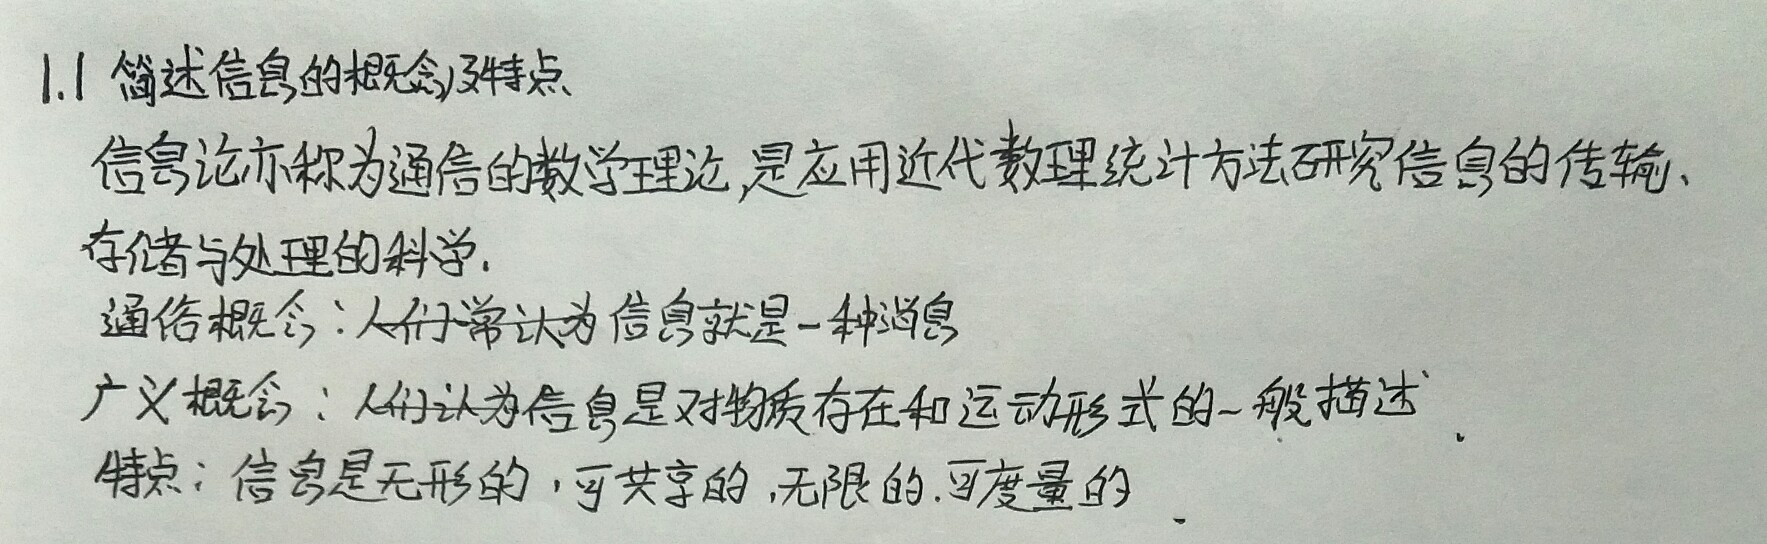 1.1 简述信息的概念及特点
信息论亦称为通信的数学理论,是应用近代数理统计方法研究信息的传输、
存储与处理的科学.
通俗概念:人们常认为信息就是一种消息
广义概念:人们认为信息是对物质存在和运动形式的一般描述.
特点:信息是无形的,可共享的,无限的.可度量的.